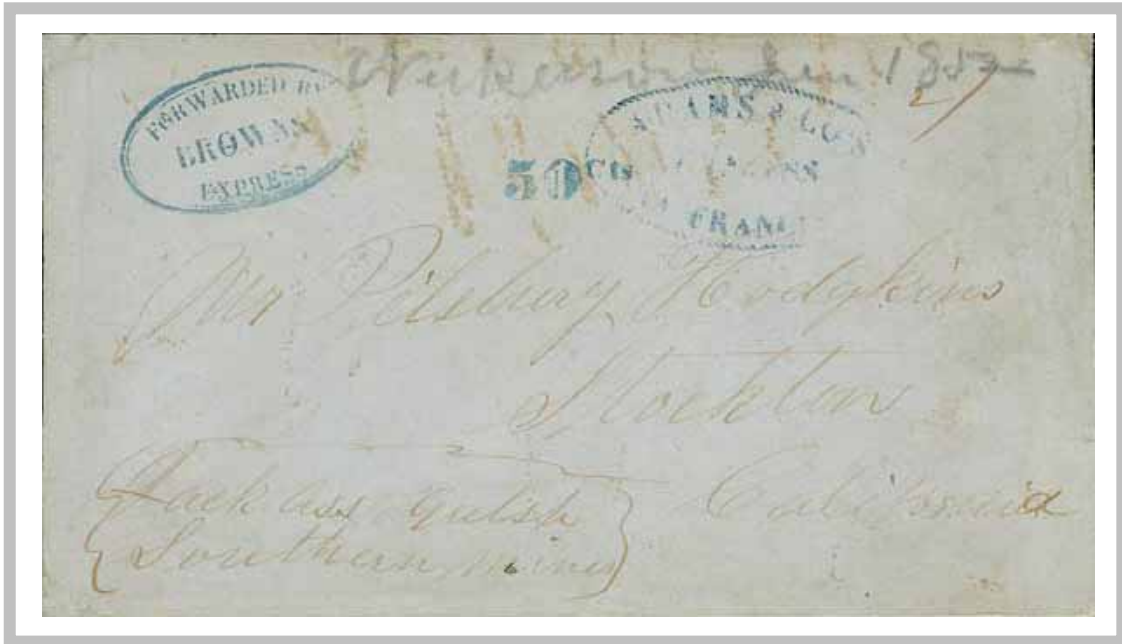 FORWARDED BY
BROWNS
EXPRESS
50 Cts
ADAMS & CO'S
EXPRESS
SAN FRANC
Mr Pilsbury Hodgkins
Stockton
California
Jack ass Gulch
Southern mines